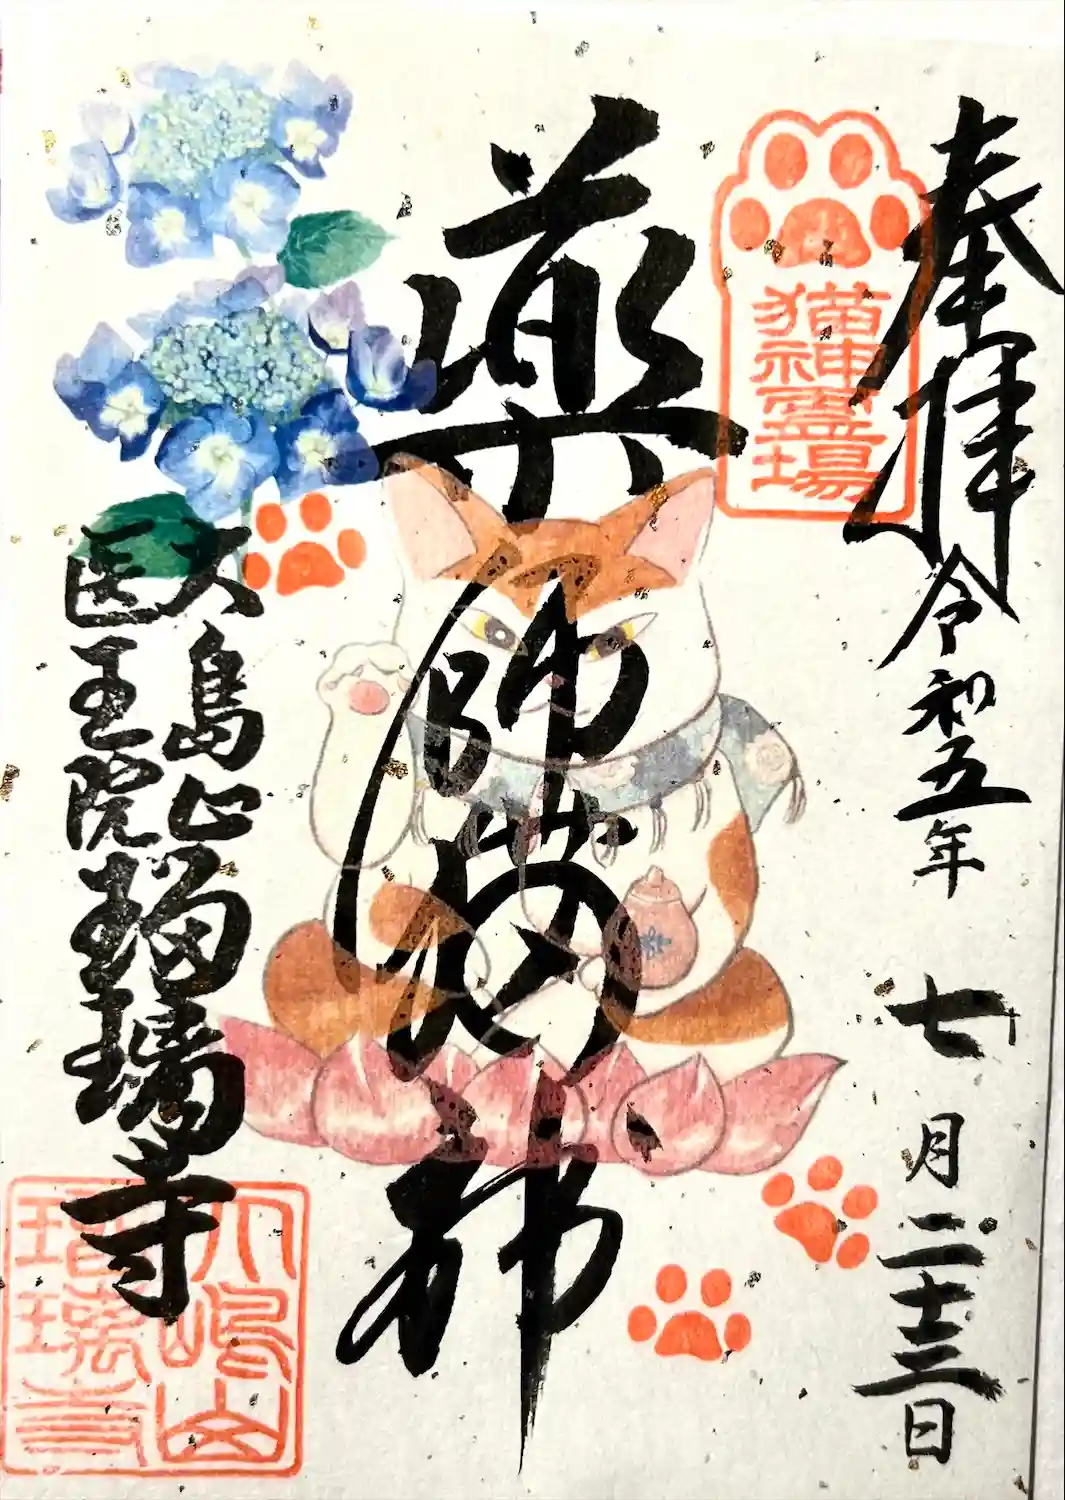 奉拝
令和五年 七月二十三日
猫神霊場
薬師猫神
大島山
医王院 瑠璃寺
大嶋山
瑠璃寺